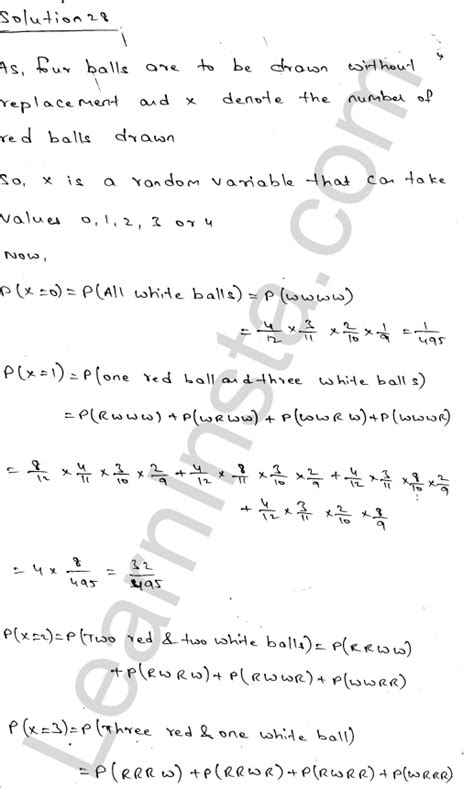 Solution 28
As, four balls are to be drawn without
replacement and x denote the number of
red balls drawn
So, x is a random variable that can take
values 0, 1, 2, 3 or 4
Now,
P(x=0) = P(All white balls) = P(WWWW)
= 4/12 × 3/11 × 2/10 × 1/9 = 1/495
P(x=1) = P(one red ball and three white balls)
= P(RWWW) + P(WRWW) + P(WWRW) + P(WWWR)
= 8/12 × 4/11 × 3/10 × 2/9 + 4/12 × 8/11 × 3/10 × 2/9 + 4/12 × 3/11 × 8/10 × 2/9
+ 4/12 × 3/11 × 2/10 × 8/9
= 4 × 8/495 = 32/495
P(x=2) = P(Two red & two white balls) = P(RRWW)
+ P(RWRW) + P(RWWR) + P(WWRR)
P(x=3) = P(Three red & one white ball)
= P(RRRW) + P(RRWR) + P(RWRR) + P(WRRR)
LearnInsta.com